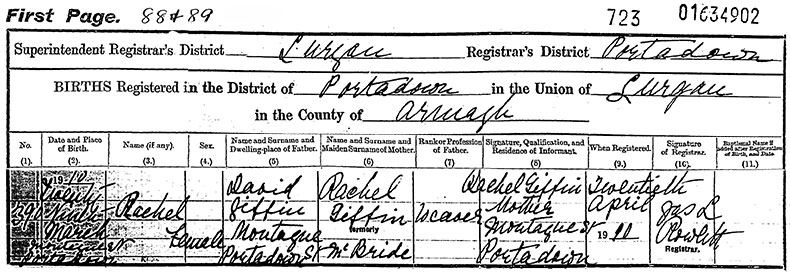 First Page. 88 & 89 723 01634902
Superintendent Registrar's District Lurgan Registrar's District Portadown
BIRTHS Registered in the District of Portadown in the Union of Lurgan
in the County of Armagh
No. Date and Place of Birth. Name (if any). Sex. Name and Surname and Dwelling-place of Father. Name and Surname and Maiden Surname of Mother. Rank or Profession of Father. Signature, Qualification, and Residence of Informant. When Registered. Signature of Registrar. Baptismal Name if added after Registration of Birth, and Date.
(1). (2.) (3.) (4.) (5) (6) (7) (8) (9.) (10.) (11.)
19
David Rachel Rachel Giffin Twentieth
Rachel Giffin Giffin Weaver Mother April Jas L
March Female Montague formerly Montague St 19 11 Rowlett
Portadown Portadown St McBride Portadown Registrar.